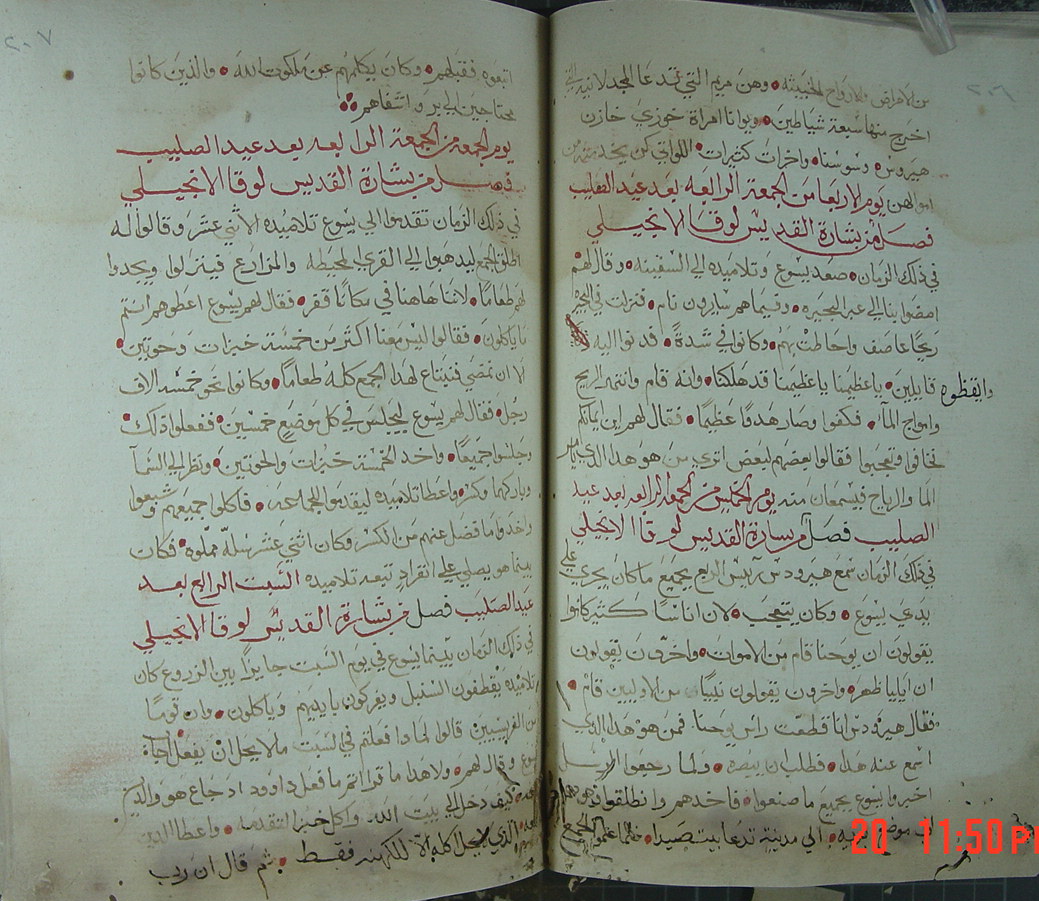 ٢٠٦
من الامراض والارواح الخبيثه وهن مريم التي تدعا المجدلانيه التي
اخرج منها سبعة شياطين ويوانا امراة خوزي خازن
هيرودس وسوسنا واخرات كثيرات اللواتي كن يخدمنه من
اموالهن يوم الاربعا من الجمعة الرابعه بعد عيد الصليب
فصل من بشارة القديس لوقا الانجيلي
في ذلك الزمان صعد يسوع وتلاميذه الي السفينه وقال لهم
امضوا بنا الي عبر البحيره وفيما هم سايرون نام فنزلت في البحيره
ريحا عاصف واحاطت بهم وكانوا في شدة فدنوا اليه
وايقظوه قايلين ياعظيمنا ياعظيمنا قد هلكنا وانه قام وانتهر الريح
وامواج الما فكفوا وصار هدوا عظيما فقال لهم اين ايمانكم
فخافوا وتعجبوا فقالوا بعضهم لبعض اتري من هو هذا الذي يامر
الما والرياح فيسمعان منه يوم الخميس من الجمعه الرابعه بعد عيد
الصليب فصل من بشارة القديس لوقا الانجيلي
في ذلك الزمان سمع هيرودس رييس الربع بجميع ما كان يجري علي
يدي يسوع وكان يتعجب لان اناسا كثير كانوا
يقولون ان يوحنا قام من الاموات واخرون يقولون
ان ايليا ظهر واخرون يقولون نبيا من الاوليين قام
فقال هيرودس انا قطعت راس يوحنا فمن هو هذا الذي
اسمع عنه هذا فطلب ان يبصره ولما رجعوا الرسل
اخبروا يسوع بجميع ما صنعوا فاخذهم وانطلقوا
موضع الي مدينة تدعا بيت صيدا فلما علموا الجمع
20 11:50 PM
٢٠٧
اتبعوه فقبلهم وكان يكلمهم عن ملكوت الله والذين كانوا
محتاجين الي اشفاهم
يوم الجمعه من الجمعة الرابعه بعد عيد الصليب
فصل من بشارة القديس لوقا الانجيلي
في ذلك الزمان تقدموا الي يسوع تلاميذه الاثني عشر وقالوا له
اطلق الجمع ليذهبوا الي القري المحيطه والمزارع فينزلوا ويجدوا
لهم طعاما لاننا هاهنا في مكانا قفر فقال لهم يسوع اعطوهم انتم
ما ياكلون فقالوا ليس معنا اكثر من خمسة خبزات وحوتين
الا ان نمضي فنبتاع لهذا الجمع كله طعاما وكانوا نحو خمسه الاف
رجل فقال لهم يسوع ليجلس في كل موضع خمسين ففعلوا ذلك
وجلسوا جميعا واخذ الخمسة خبزات والحوتين ونظر الي السما
وباركهما وكسر واعطا تلاميذه ليقدموا للجماعه فاكلوا جميعهم وشبعوا
واخذوا ما فضل عنهم من الكسر وكان اثني عشر سلة مملوه فكان
بينما هو يصلي علي انفراد تبعه تلاميذه السبت الرابع بعد
عيد الصليب فصل من بشارة القديس لوقا الانجيلي
في ذلك الزمان بينما يسوع في يوم السبت جايزا بين الزروع كان
تلاميذه يقطفون السنبل ويفركون بايديهم وياكلون وان قوما
من الفريسيين قالوا لماذا فعلتم في السبت ما لا يحل ان يفعل اجاب
يسوع وقال لهم ولا هذا ما قراتم ما فعل داوود اذ جاع هو والذين
معه كيف دخل الي بيت الله واكل خبز التقدمه واعطا الذين
معه الذي لا يحل اكله الا للكهنه فقط ثم قال ان رب